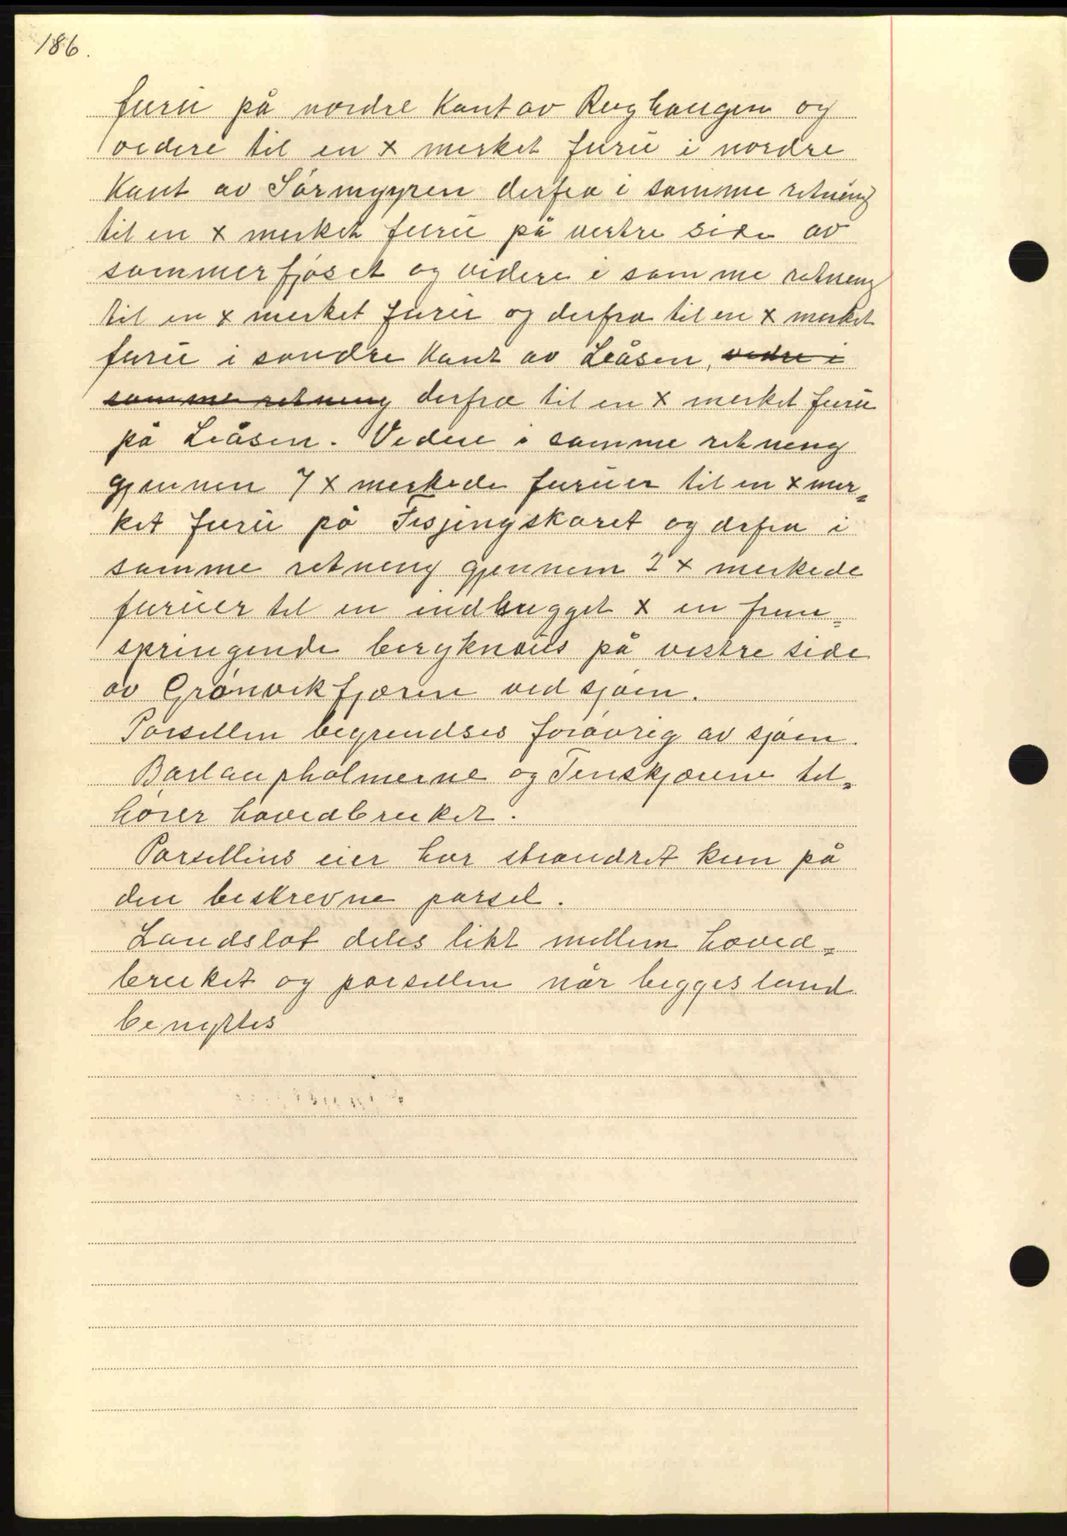 186.
furu på nordre Kant av Rughaugen og
videre til en x merket furu i nordre
Kant av Sørmyren derfra i samme retning
til en x merket furu på vestre side av
sommerfjøset og videre i samme retning
til en x merket furu og derfra til en x merket
furu i søndre Kant av Leåsen, vedre i
samme retning derfra til en x merket furu
på Leåsen. Videre i samme retning
gjennem 7 x merkede furuer til en x mer=
ket furu på Fesjingskaret og derfra i
samme retning gjennem 2 x merkede
furuer til en indhugget x en frem=
springende bergknaus på vestre side
av Grønvikfjæren ved sjøen.
Parsellen begrendses forøvrig av sjøen.
Barlaupholmerne og Tenskjærene til=
hører hovedbruket.
Parsellens eier har strandret kun på
den beskrevne parsel.
Landslot deles likt mellem hoved=
bruket og parsellen når begges land
benyttes